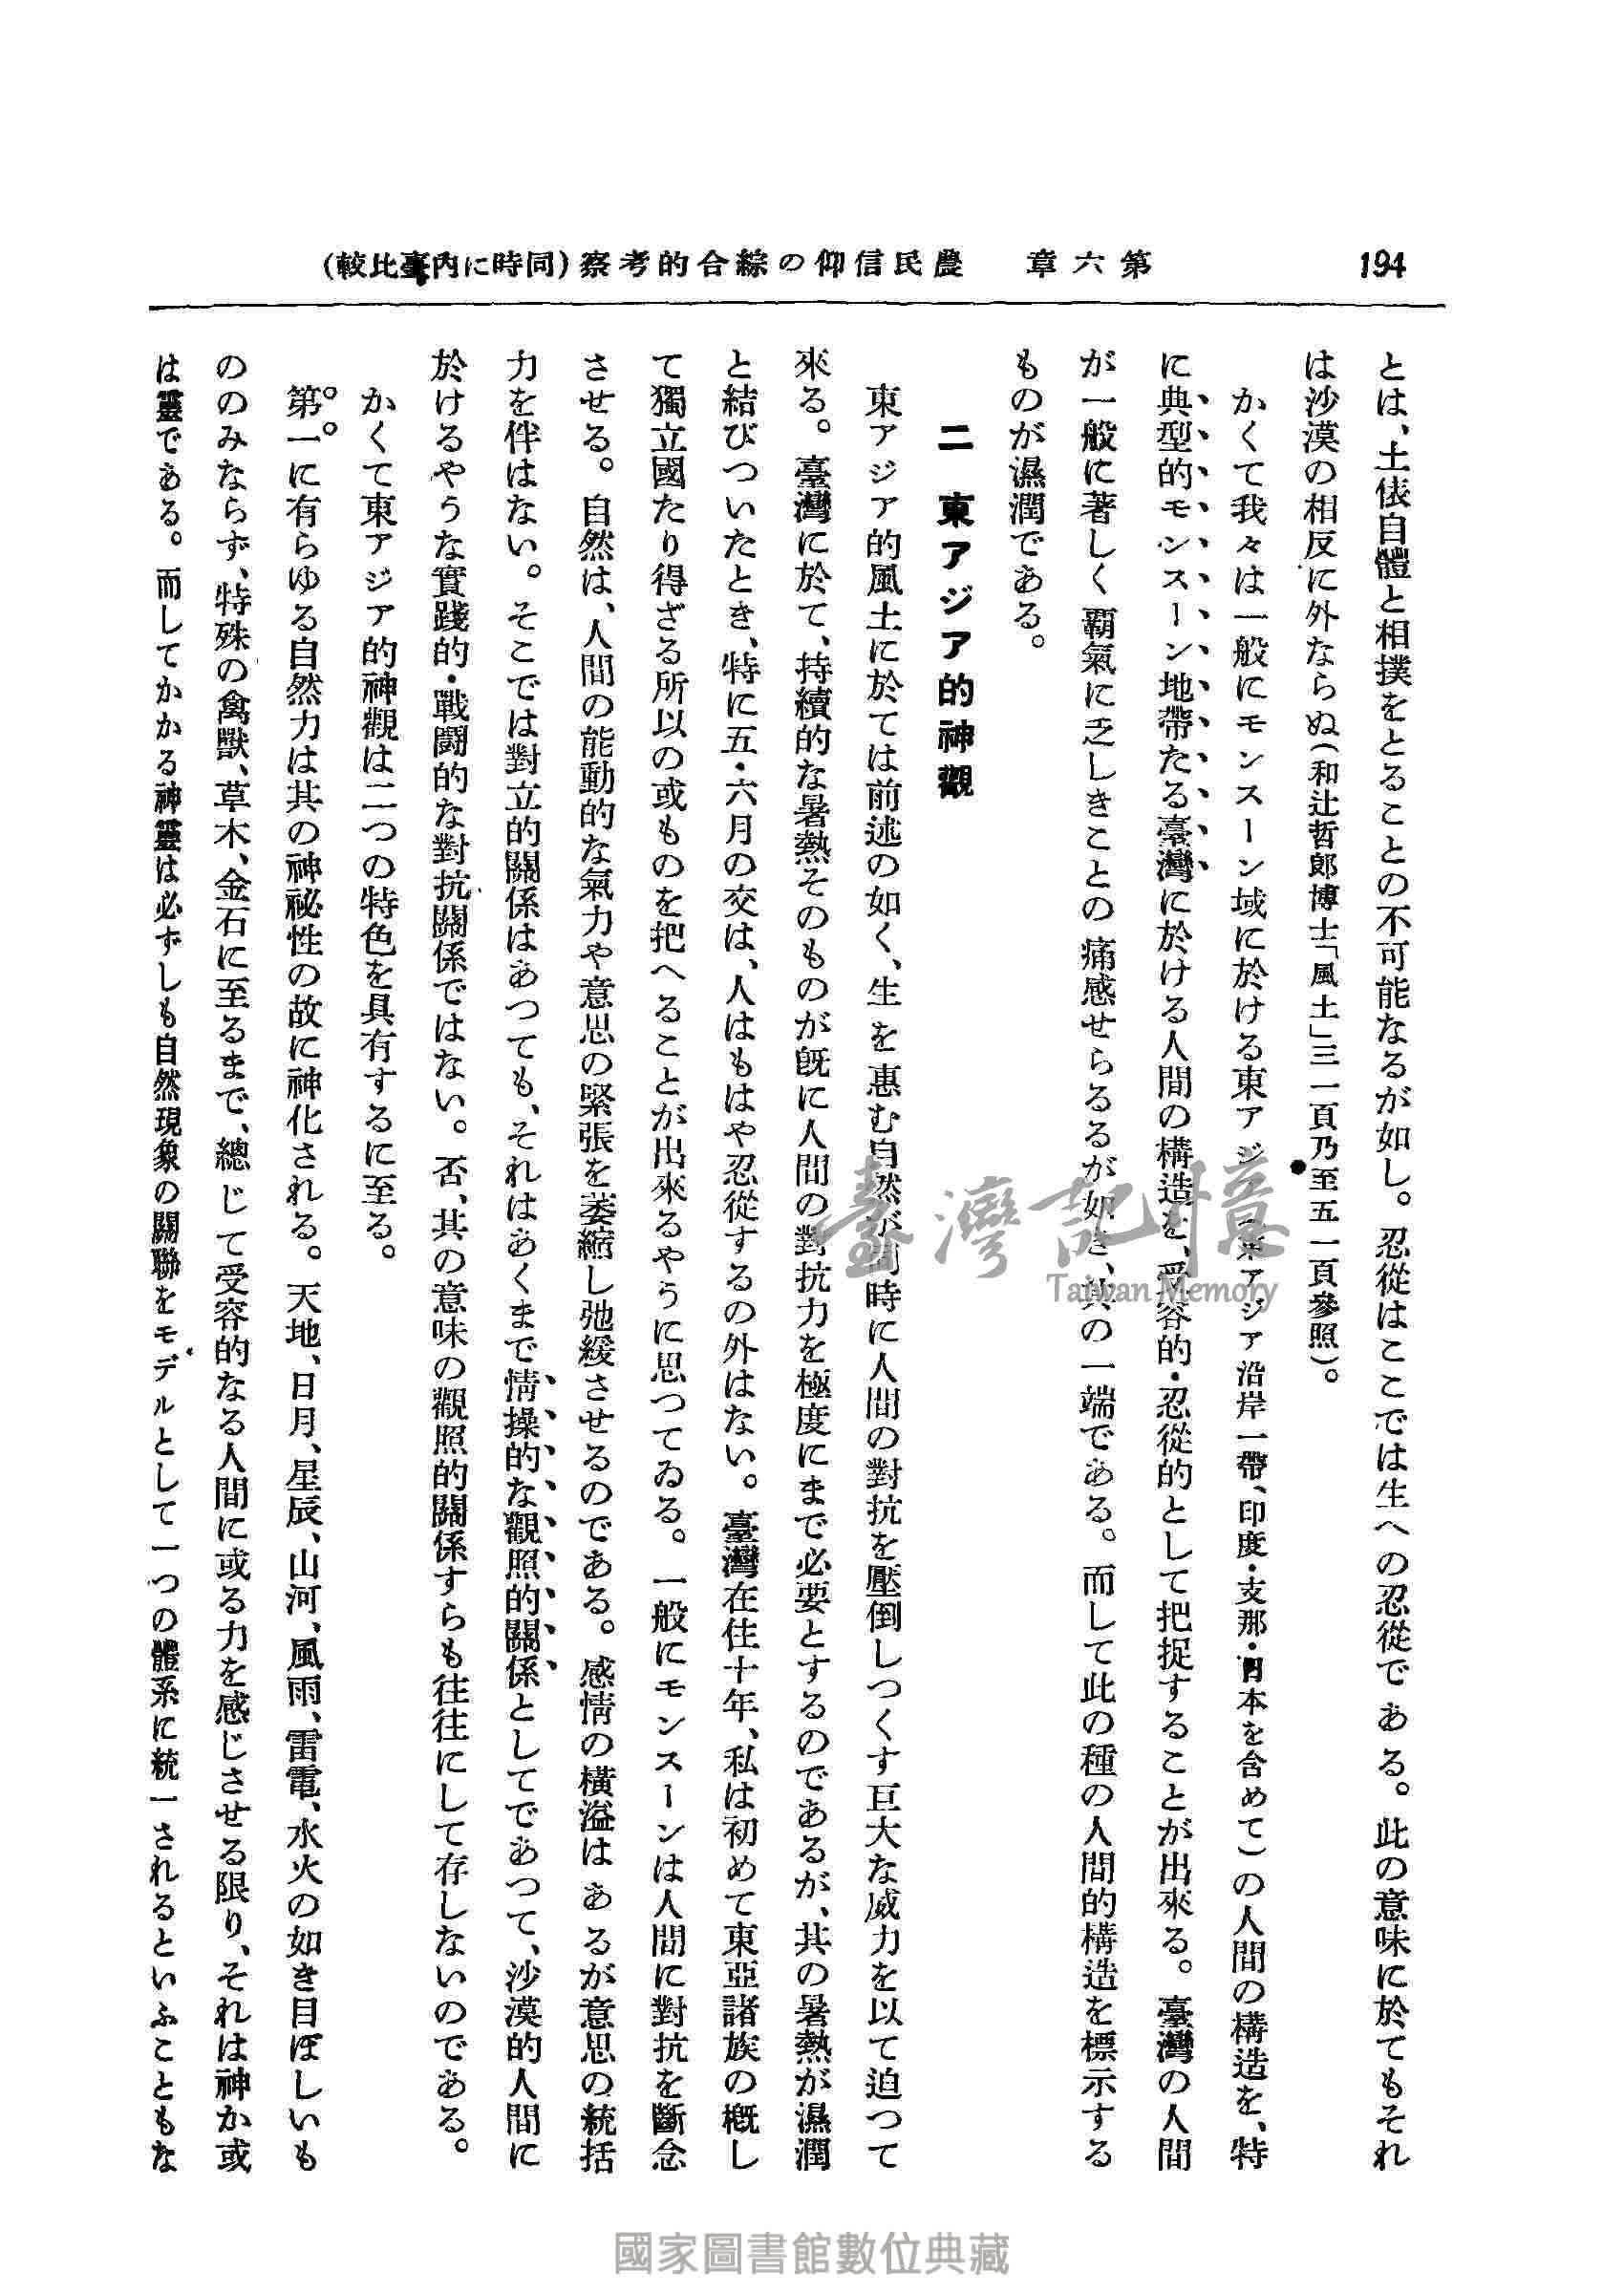 194
第六章　農民信仰の綜合的考察(同時に內臺比較)
とは、土俵自體と相撲をとることの不可能なるが如し。忍從はここでは生への忍從である。此の意味に於てもそれ
は沙漠の相反に外ならぬ(和辻哲郎博士「風土」三一頁乃至五一頁參照)。
かくて我々は一般にモンスーン域に於ける東アジア(東アジア沿岸一帶、印度・支那・日本を含めて)の人間の構造を、特
に典型的モンスーン地帶たる臺灣に於ける人間の構造を、受容的・忍從的として把捉することが出來る。臺灣の人間
が一般に著しく覇氣に乏しきことの痛感せらるるが如き、其の一端である。而して此の種の人間的構造を標示する
ものが濕潤である。
二　東アジア的神觀
東アジア的風土に於ては前述の如く、生を惠む自然が同時に人間の對抗を壓倒しつくす巨大な威力を以て迫つて
來る。臺灣に於て、持續的な暑熱そのものが旣に人間の對抗力を極度にまで必要とするのであるが、其の暑熱が濕潤
と結びついたとき、特に五・六月の交は、人はもはや忍從するの外はない。臺灣在住十年、私は初めて東亞諸族の槪し
て獨立國たり得ざる所以の或ものを把へることが出來るやうに思つてゐる。一般にモンスーンは人間に對抗を斷念
させる。自然は、人間の能動的な氣力や意思の緊張を萎縮し弛緩させるのである。感情の橫溢はあるが意思の統括
力を伴はない。そこでは對立的關係はあつても、それはあくまで情操的な觀照的關係としてであつて、沙漠的人間に
於けるやうな實踐的・戰鬪的な對抗關係ではない。否、其の意味の觀照的關係すらも往往にして存しないのである。
かくて東アジア的神觀は二つの特色を具有するに至る。
第一に有らゆる自然力は其の神祕性の故に神化される。天地、日月、星辰、山河、風雨、雷電、水火の如き目ぼしいも
ののみならず、特殊の禽獸、草木、金石に至るまで、總じて受容的なる人間に或る力を感じさせる限り、それは神か或
は靈である。而してかかる神靈は必ずしも自然現象の關聯をモデルとして一つの體系に統一されるといふこともな
臺灣記憶
Taiwan Memory
國家圖書館數位典藏